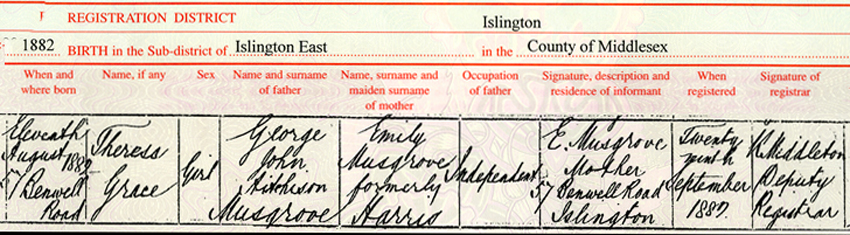 REGISTRATION DISTRICT Islington
1882 BIRTH in the Sub-district of Islington East in the County of Middlesex
When and where born
Name, if any
Sex
Name and surname of father
Name, surname and maiden surname of mother
Occupation of father
Signature, description and residence of informant
When registered
Signature of registrar
Eleventh
August 1882
57 Benwell
Road
Theresa
Grace
Girl
George
John
Aitchison
Musgrove
Emily
Musgrove
formerly
Harris
Independent
E. Musgrove
Mother
57 Benwell Road
Islington
Twenty
ninth
September
1882.
Middleton
Deputy
Registrar